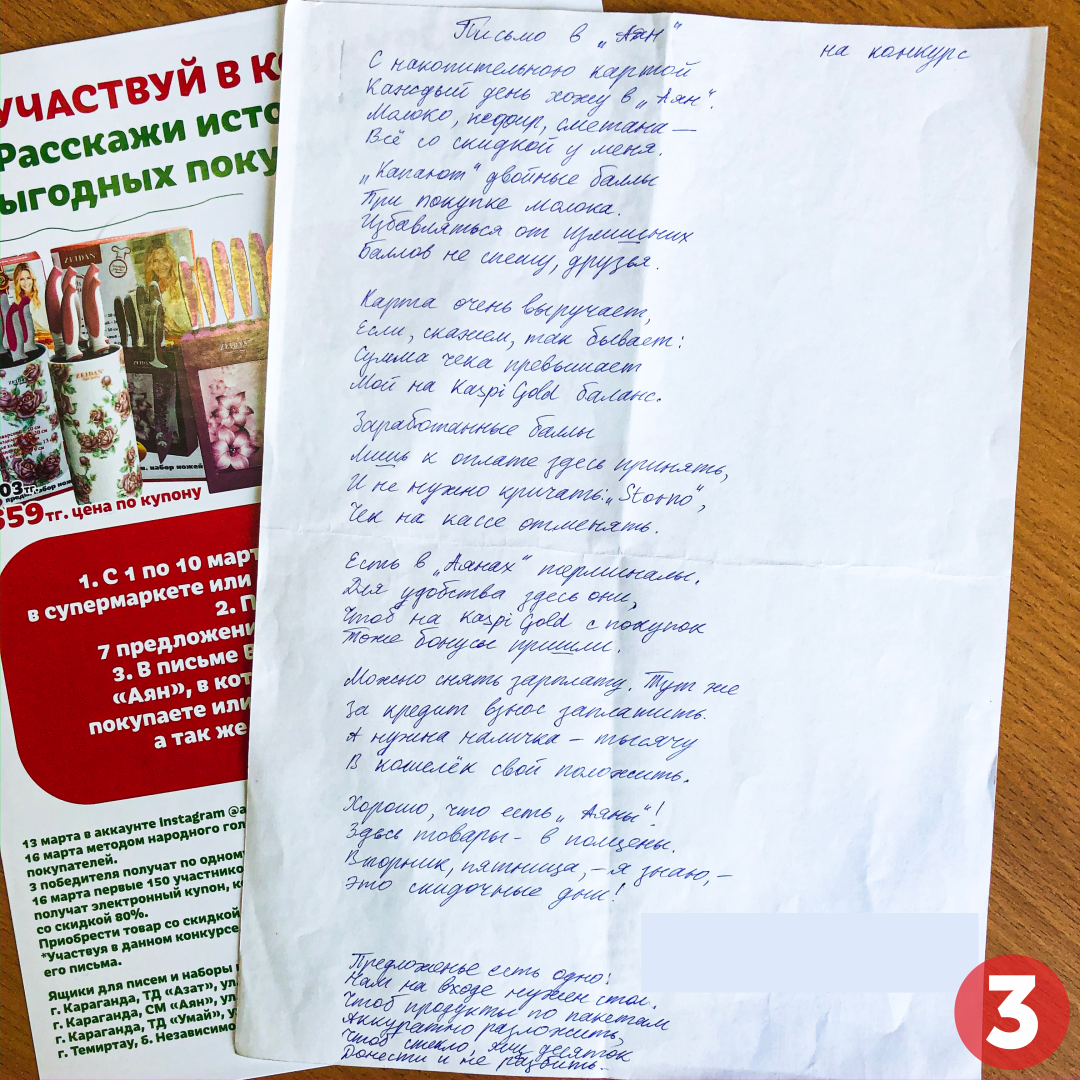 Письмо в „Аян“
на конкурс
С накопительною картой
Каждый день хожу в „Аян“.
Молоко, кефир, сметана —
Всё со скидкой у меня.
„Капают“ двойные баллы
При покупке молока.
Избавляться от излишних
Баллов не спешу, друзья.
Карта очень выручает,
Если, скажем, так бывает:
Сумма чека превышает
Мой на Kaspi Gold баланс.
Заработанные баллы
Лишь к оплате здесь принять,
И не нужно кричать: „Storno“,
Чек на кассе отменять.
Есть в „Аянах“ терминалы.
Для удобства здесь они,
Чтоб на Kaspi Gold с покупок
Тоже бонусы пришли.
Можно снять зарплату. Тут же
За кредит взнос заплатить.
А нужна наличка – тысячу
В кошелёк свой положить.
Хорошо, что есть „Аяны“!
Здесь товары – в полцены.
Вторник, пятница, – я знаю, –
Это скидочные дни!
Предложенье есть одно:
Нам на входе нужен стол.
Чтоб продукты по пакетам
Аккуратно разложить,
Чтоб стекло, яиц десяток
Донести и не разбить.
УЧАСТВУЙ В К
Расскажи исто
ыгодных поку
ZEIDAN
ZEIDAN
ZEIDAN
ZEIDAN
набор ножей
03тг.
659тг. цена по купону
1. С 1 по 10 март
в супермаркете или
2. П
7 предложени
3. В письме В
«Аян», в кот
покупаете или
а так же
13 марта в аккаунте Instagram @a
16 марта методом народного гол
покупателей.
3 победителя получат по одному
16 марта первые 150 участнико
получат электронный купон, к
со скидкой 80%.
Приобрести товар со скидкой
*Участвуя в данном конкурсе
его письма.
Ящики для писем и наборы
г. Караганда, ТД «Азат», ул
г. Караганда, СМ «Аян», ул
г. Караганда, ТД «Умай», у
г. Темиртау, б. Независимо
3